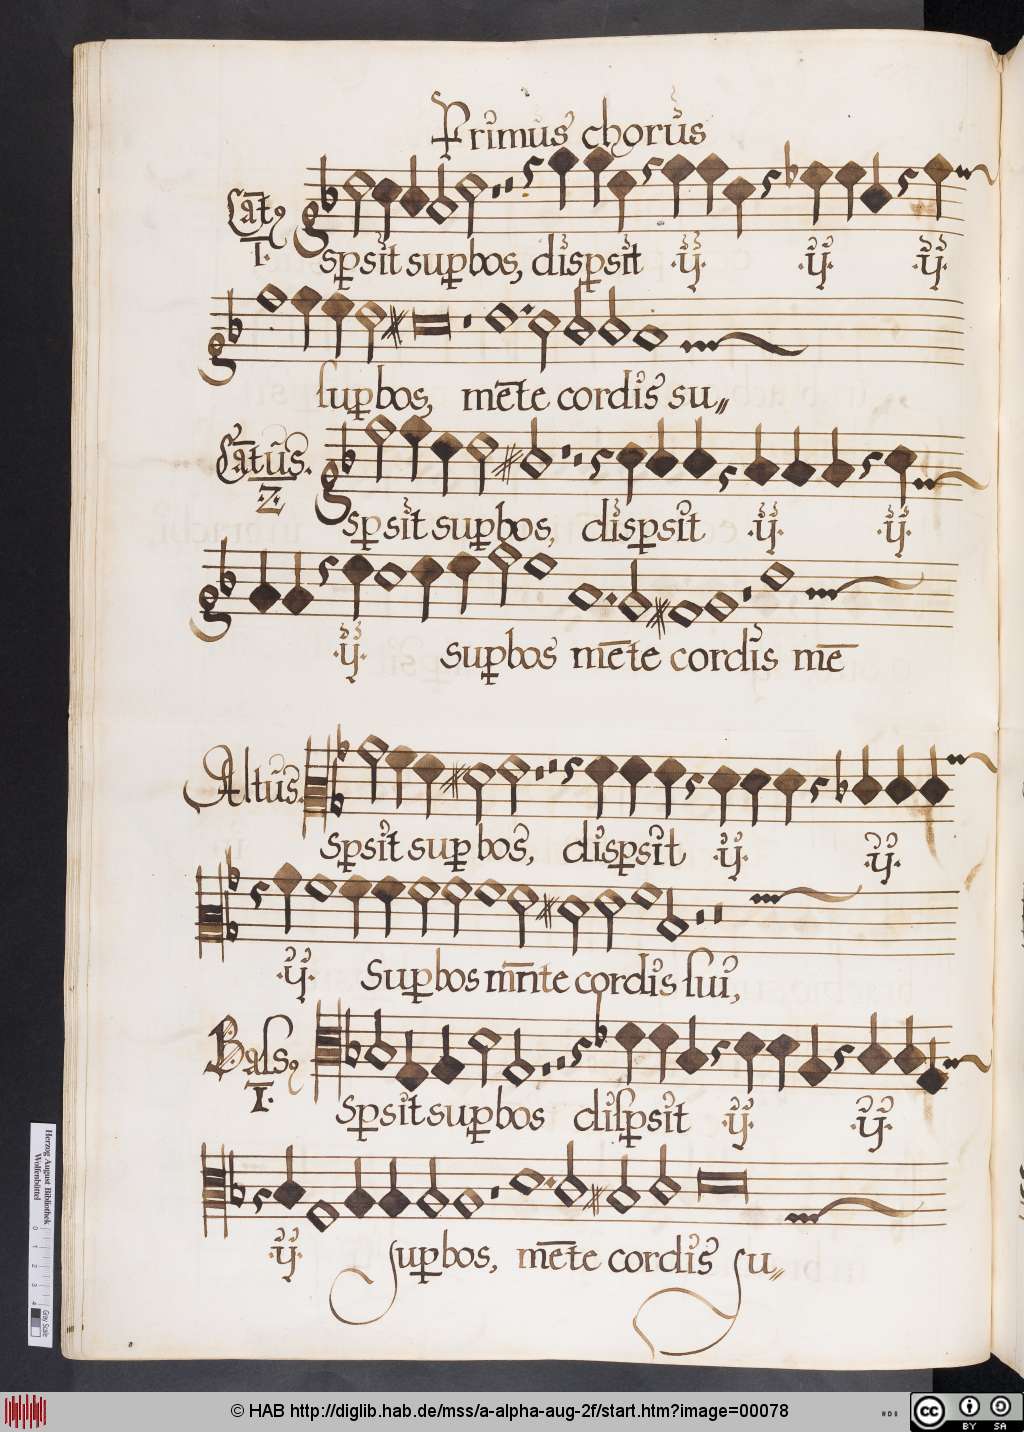 Primus chorus
Cãtꝰ
.I.
spsit supbos, dispsit .ij. .ij. .ij.
supbos, mẽte cordis su„
Cãtũs.
.2.
spsit supbos, dispsit .ij. .ij.
.ij. supbos mẽte cordis mẽ
Altũs.
Spsit sup bos, dispsit .ij. .ij.
.ij. Supbos mñte cordis sui,
Basꝰ
.I.
Spsit supbos dispsit .ij. .ij.
.ij. supbos, mẽte cordis su„
Herzog August Bibliothek
Wolfenbüttel
0 1 2 3 4
Gray Scale
© HAB http://diglib.hab.de/mss/a-alpha-aug-2f/start.htm?image=00078
HAB
cc BY SA